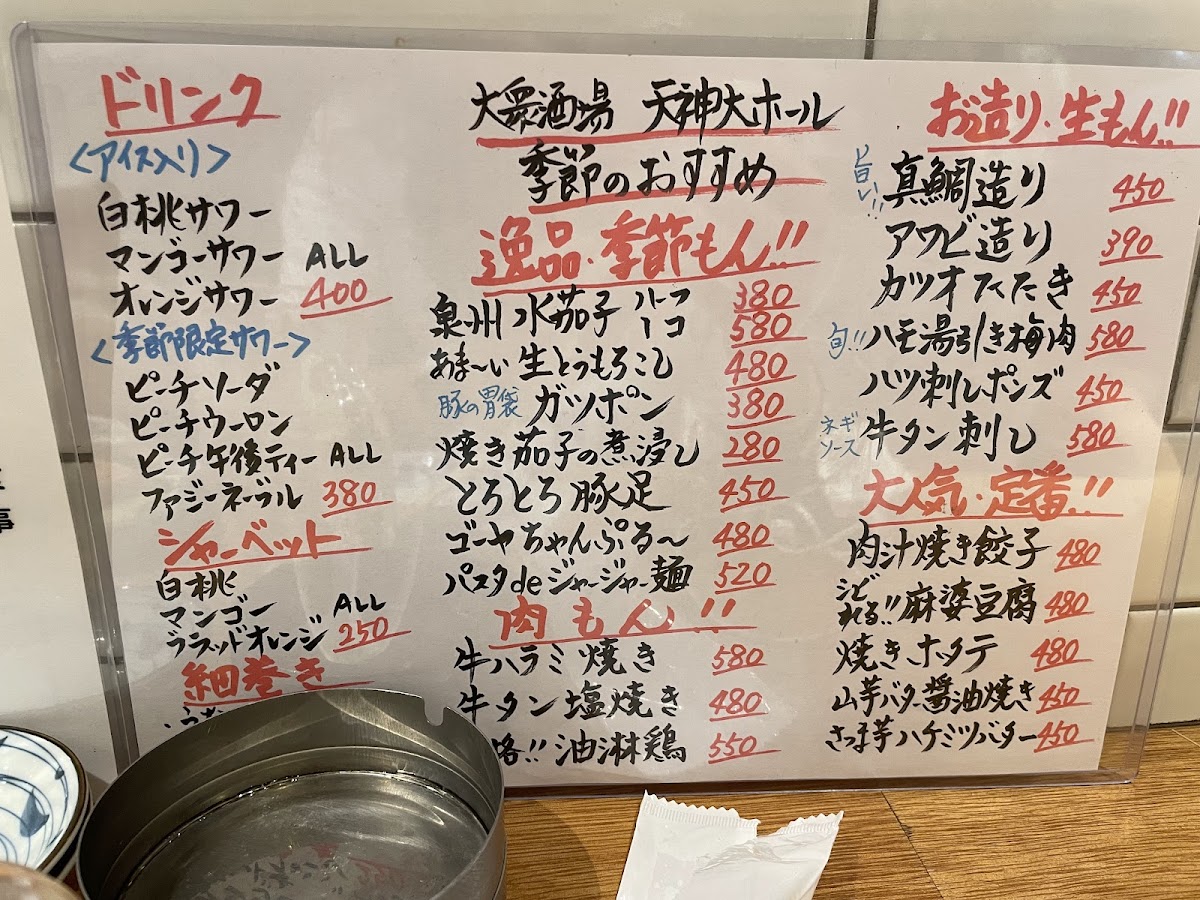 ドリンク
<アイス入り>
白桃サワー
マンゴーサワー ALL
オレンジサワー 400
<季節限定サワー>
ピーチソーダ
ピーチウーロン
ピーチ午後ティー ALL
ファジーネーブル 380
シャーベット
白桃
マンゴー ALL
ブラッドオレンジ 250
細巻き
大衆酒場 天神大ホール
季節のおすすめ
逸品・季節もん!!
泉州水茄子 ハーフ 380
一コ 580
あま〜い生とうもろこし 480
豚の胃袋 ガツポン 380
焼き茄子の煮浸し 280
とろとろ豚足 450
ゴーヤちゃんぷる〜 480
パスタdeジャージャー麺 520
肉もん!!
牛ハラミ焼き 580
牛タン塩焼き 480
!!油淋鶏 550
お造り・生もん!!
旨い!! 真鯛造り 450
アワビ造り 390
カツオたたき 450
旬!! ハモ湯引き梅肉 580
ハツ刺しポンズ 450
ネギソース 牛タン刺し 580
大人気・定番!!
肉汁焼き餃子 480
シビれる!!麻婆豆腐 480
焼きホタテ 480
山芋バター醤油焼き 450
さつま芋ハチミツバター 450